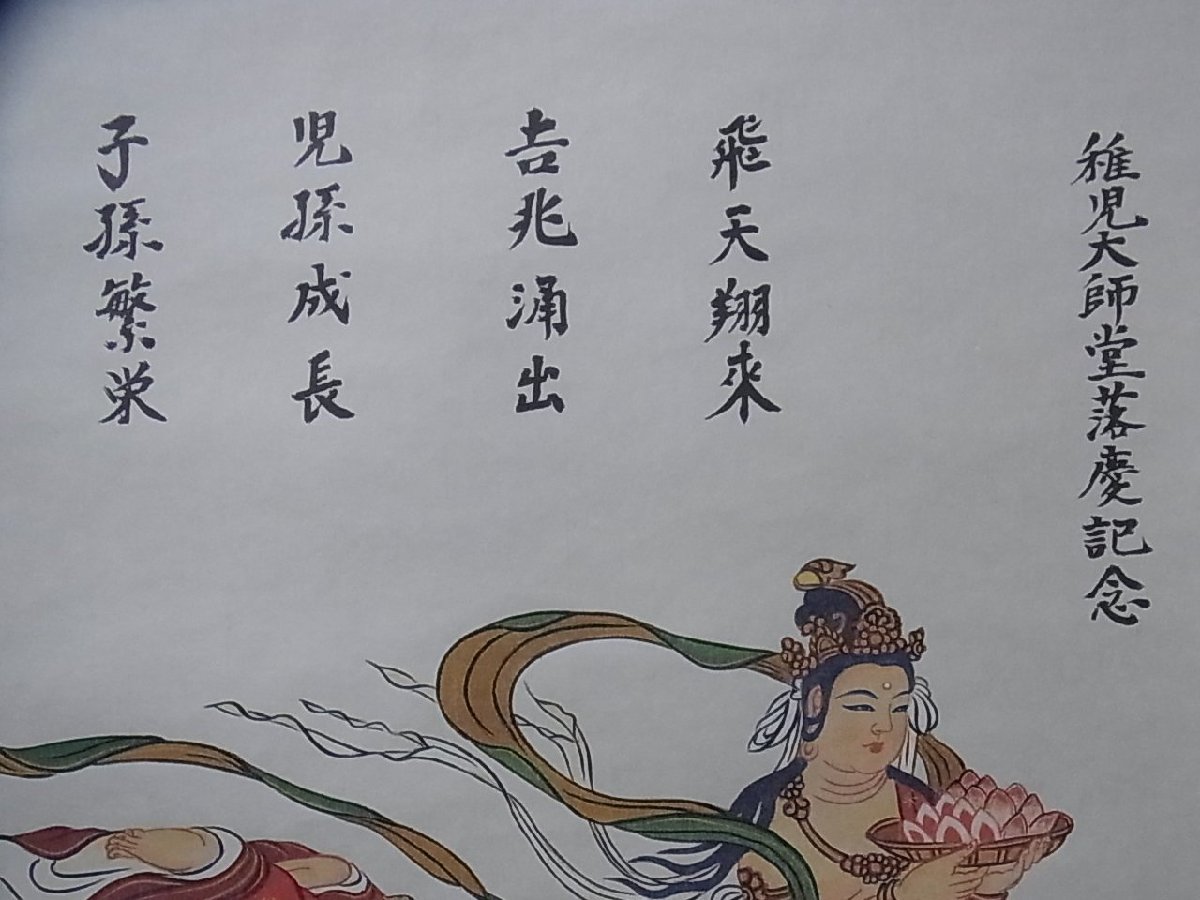 稚児大師堂落慶記念
飛天翔来
吉兆涌出
児孫成長
子孫繁栄